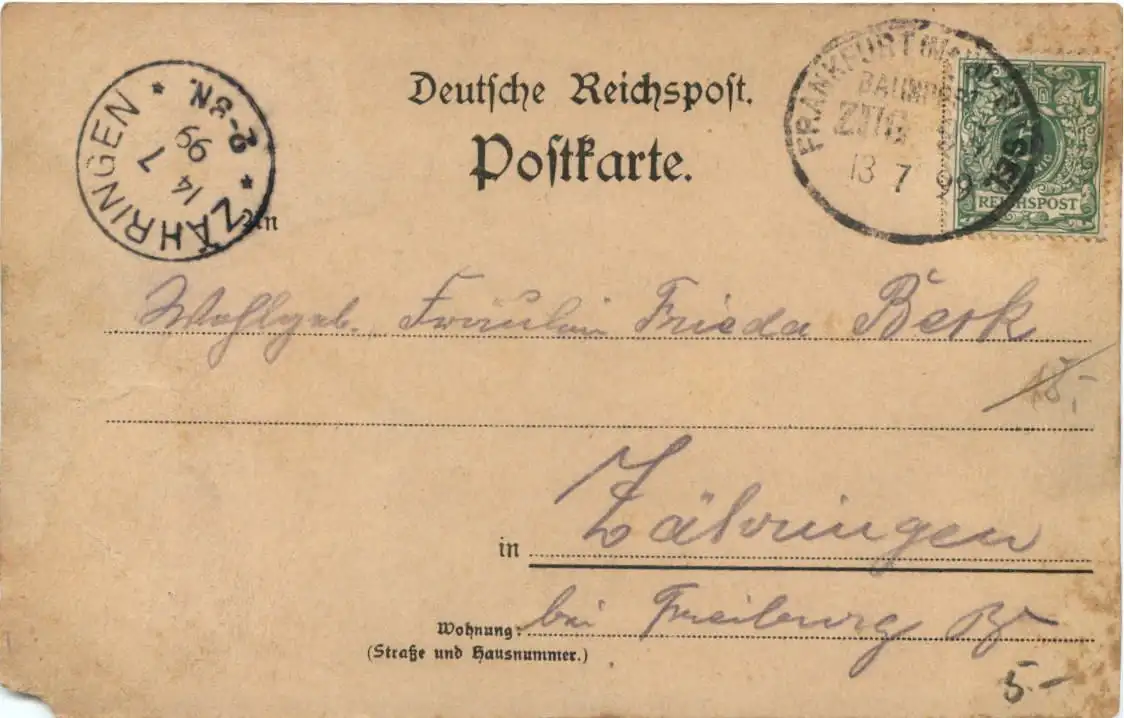 Deutsche Reichspost.
Postkarte.
ZÄHRINGEN
14 7 99
2-3N.
FRANKFURT (MAIN)-
BAHNPOST
ZUG
13 7 99
REICHSPOST
An
Wohlgeb. Fräulein Frieda Berk
18,-
in Zähringen
Wohnung: bei Freiburg B
(Straße und Hausnummer.)
5.-